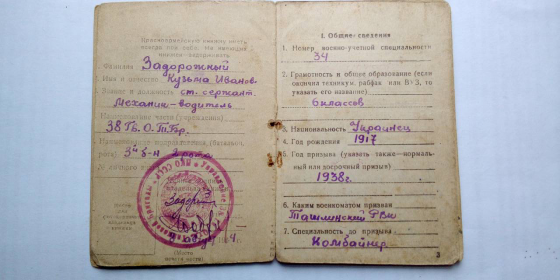 Красноармейскую книжку иметь
всегда при себе. Не имеющих
книжек-задерживать
Фамилия Задорожный
Имя и отчество Кузьма Иванов.
Звание и должность ст. сержант.
Механик-водитель
38 Гв. О.Т.Бр.
рота) 3й б-н 2 рота
Задорож
I. Общие сведения
1. Номер военно-учетной специальности
34
2. Грамотность и общее образование (если
окончил техникум, рабфак или ВУЗ, то
указать его название)
6 классов
3. Национальность Украинец
4. Год рождения 1917
5. Год призыва (указать также—нормаль-
ный или досрочный призыв)
1938г.
6. Каким военкоматом призван
Ташлинский РВК
7. Специальность до призыва
Комбайнер
3